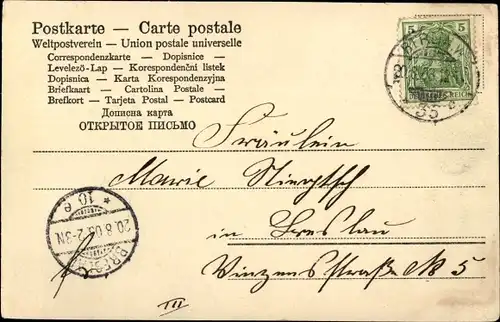 Postkarte — Carte postale
Weltpostverein — Union postale universelle
Correspondenzkarte — Dopisnice —
Levelező-Lap — Korespondenční lístek
Dopisnica — Karta Korespondenzyjna
Briefkaart — Cartolina Postale —
Brefkort — Tarjeta Postal — Postcard
Дописна карта
ОТКРЫТОЕ ПИСЬМО
5 5
Fräulein
Marie
in Breslau
Vinzensstraße № 5
III
BRESLAU
20.8.03.2-3N
* 10 e
35